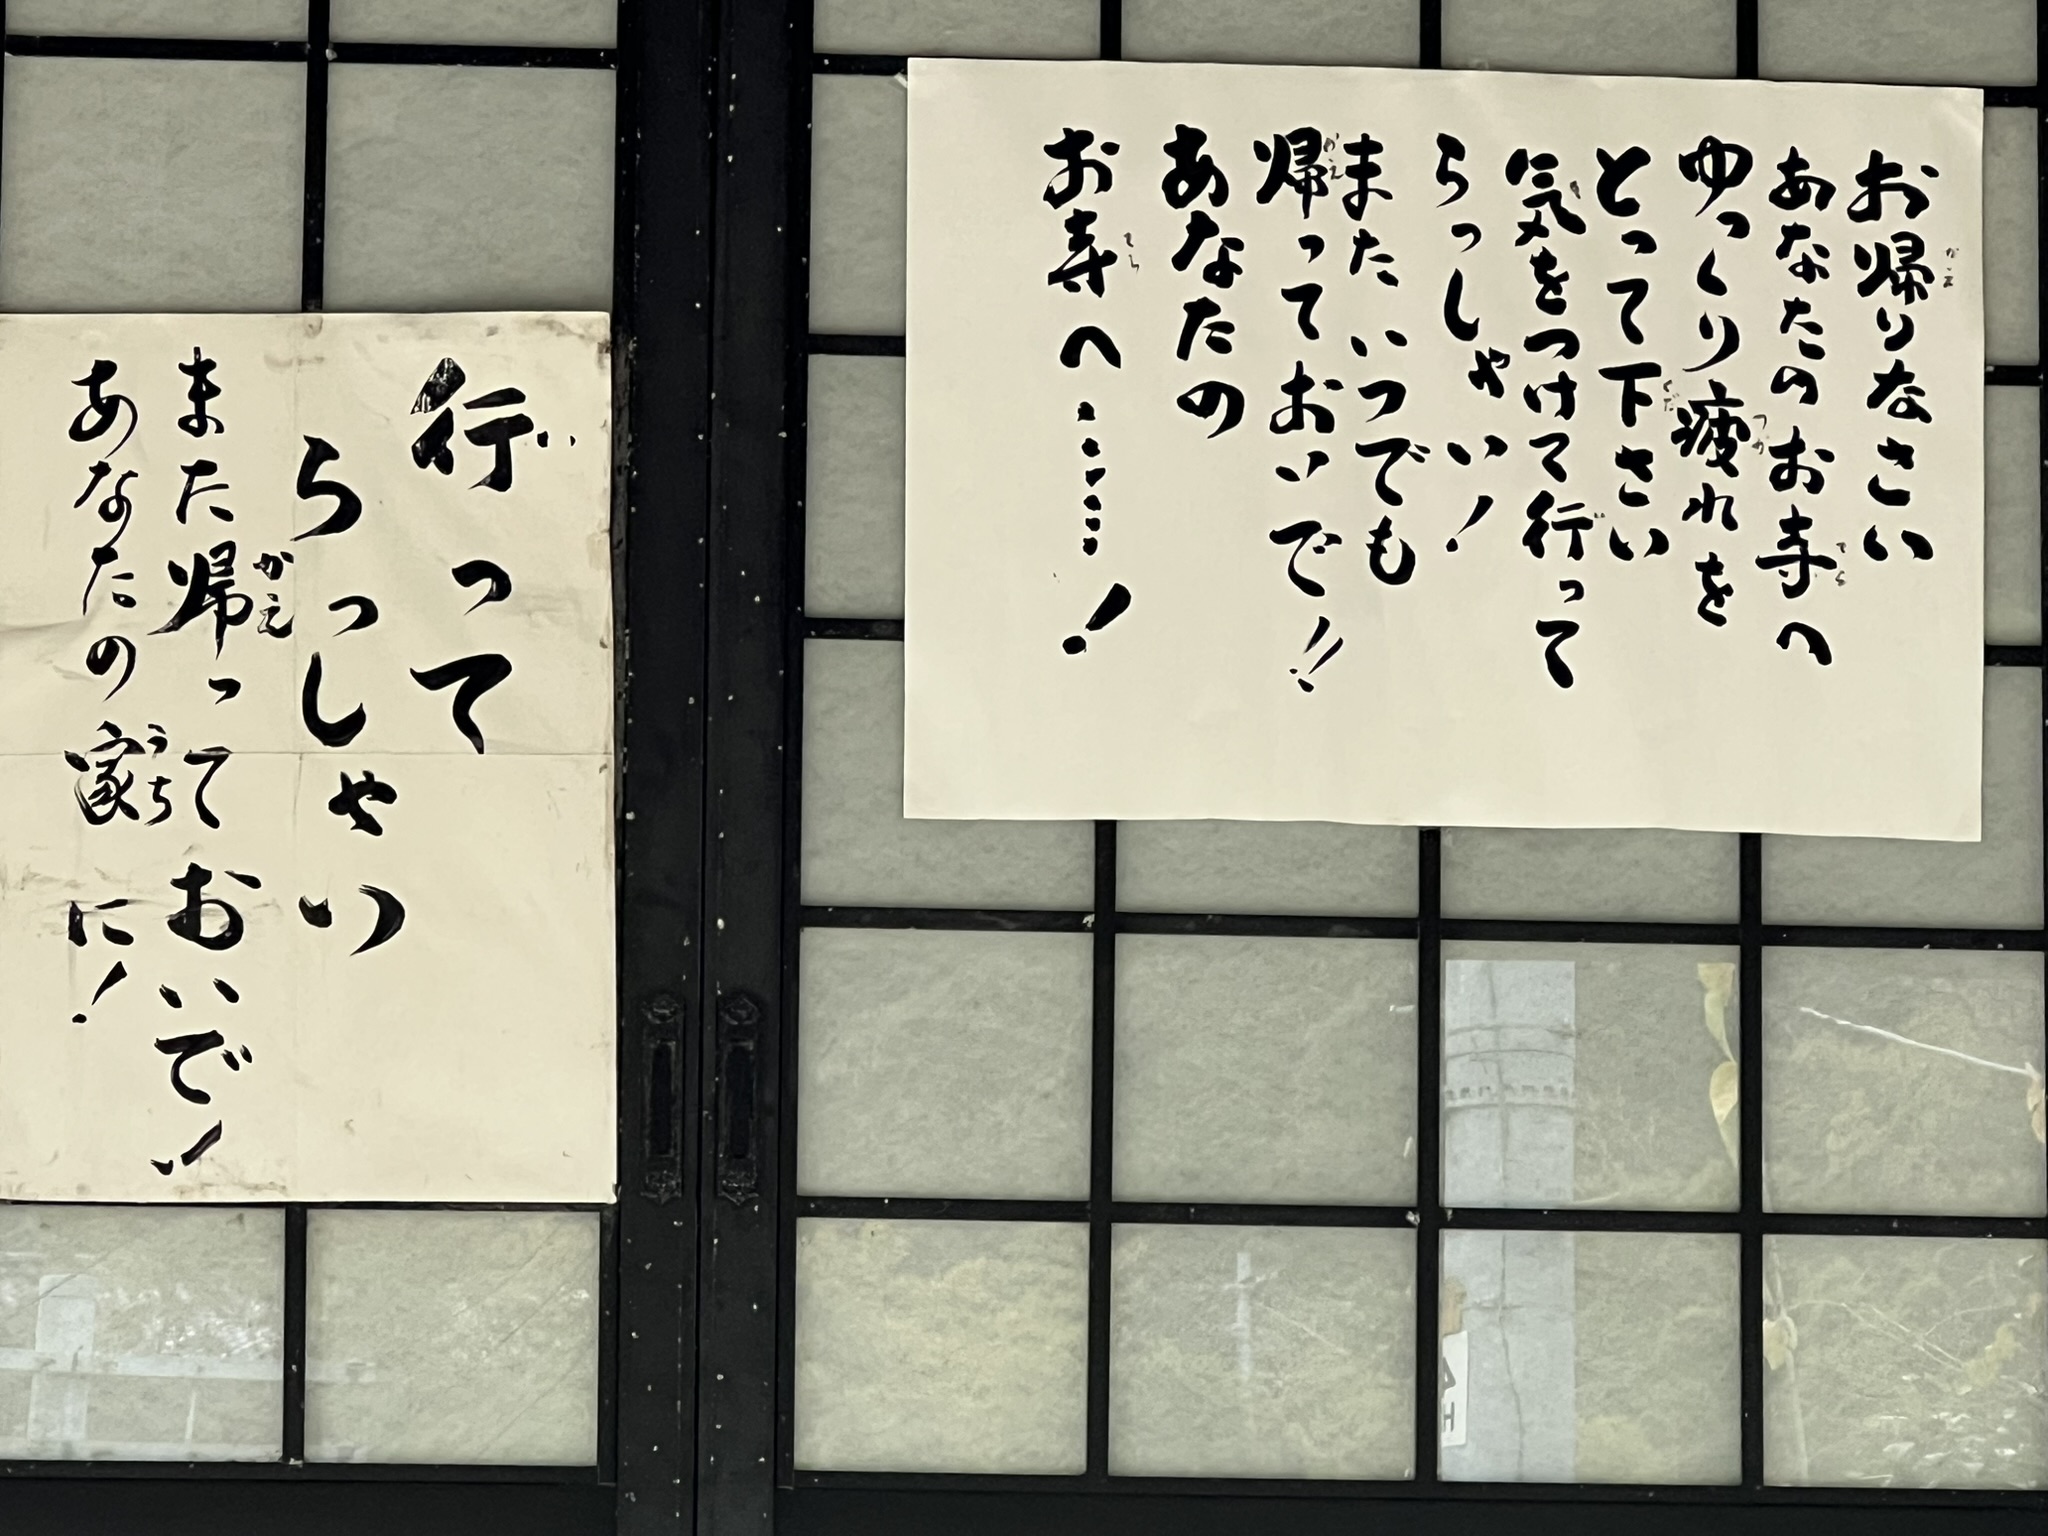 お帰りなさい
あなたのお寺へ
ゆっくり疲れを
とって下さい
気をつけて行って
らっしゃい!
またいつでも
帰っておいで!!
あなたの
お寺へ………!
行って
らっしゃい
また帰っておいで!!
あなたの家に!